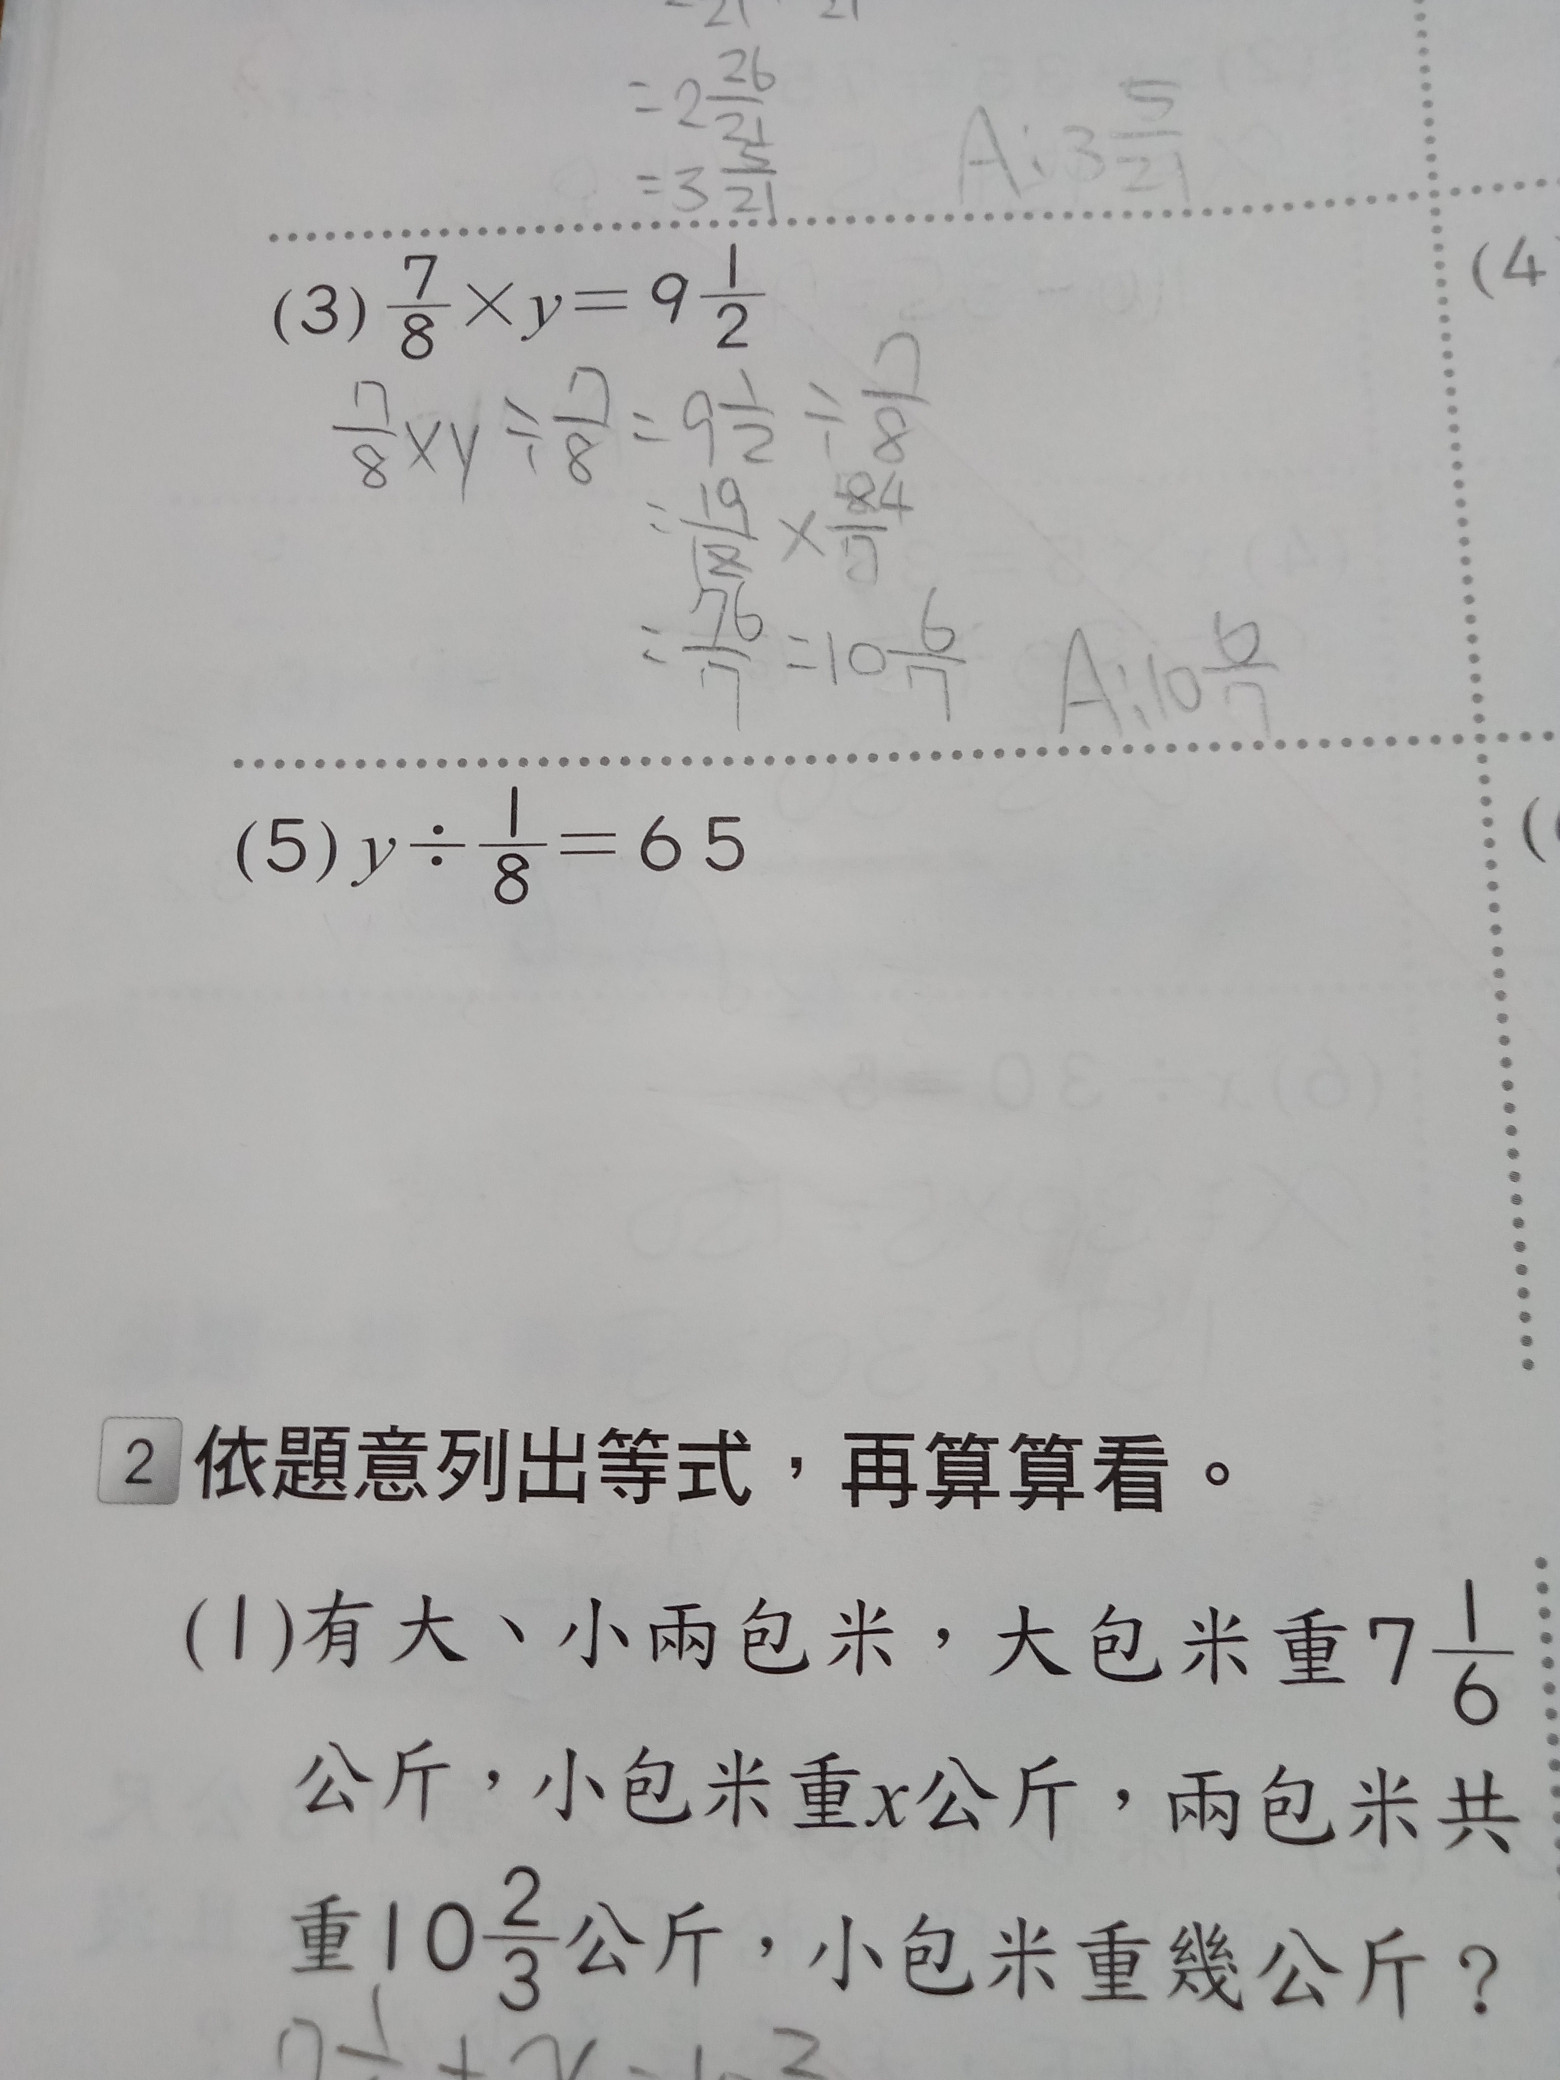 21 21
=2 26/21
=3 5/21 A:3 5/21
(3) 7/8 × y = 9 1/2
7/8 × y ÷ 7/8 = 9 1/2 ÷ 7/8
= 19/12 × 84/7
= 76/7 = 10 6/7 A:10 6/7
(4
(5) y ÷ 1/8 = 65
(
2 依題意列出等式，再算算看。
(1)有大、小兩包米，大包米重7 1/6
公斤，小包米重x公斤，兩包米共
重10 2/3公斤，小包米重幾公斤？